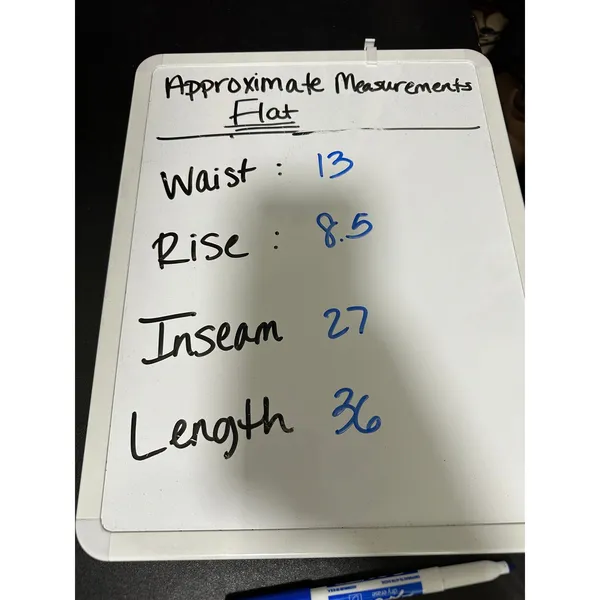 Approximate Measurements
Flat
Waist : 13
Rise : 8.5
Inseam 27
Length 36